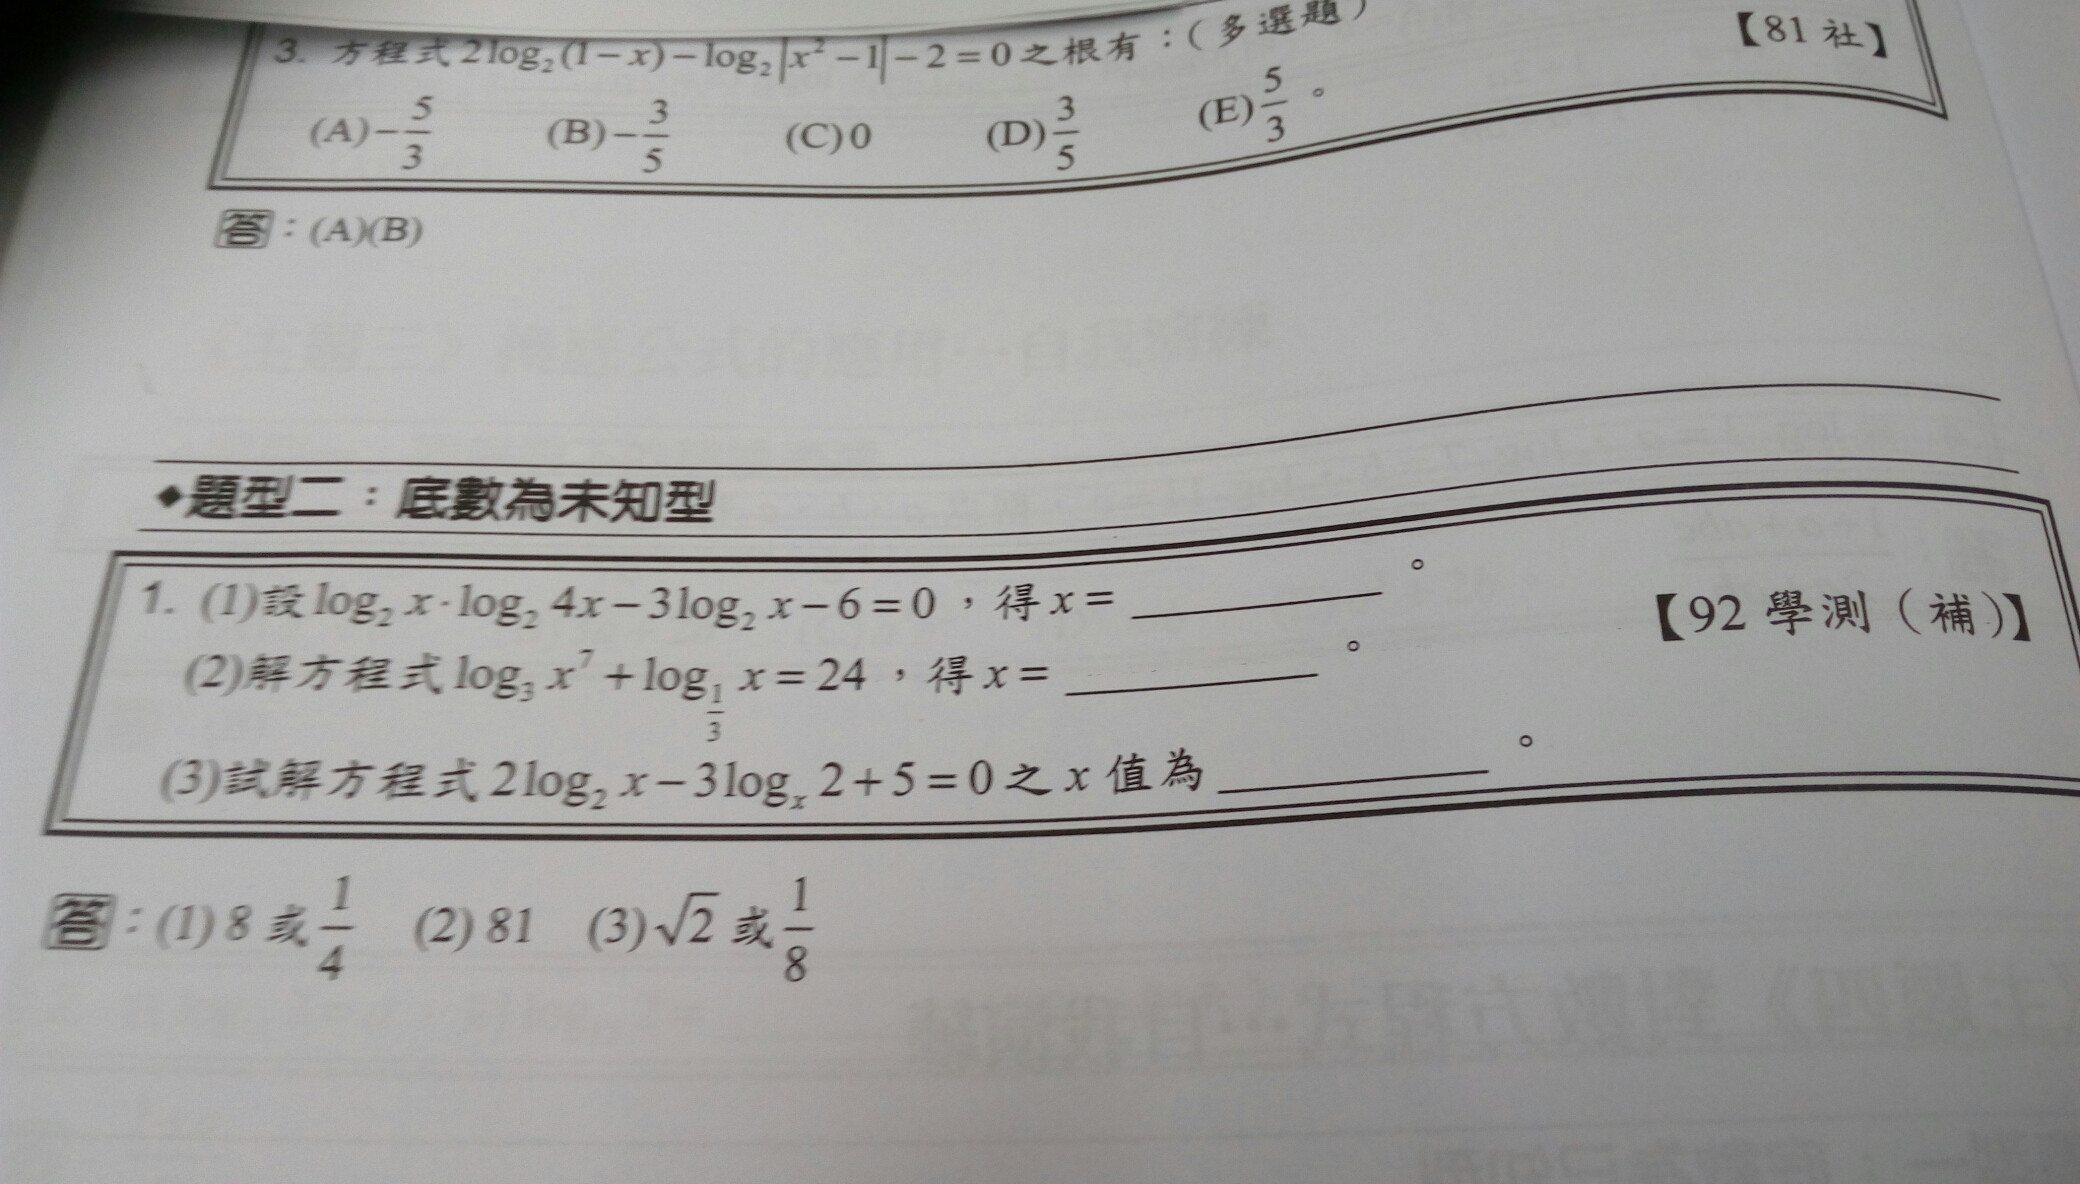 3. 方程式 2log₂(1−x)−log₂|x²−1|−2=0 之根有：(多選題) 【81 社】
(A)−5/3 (B)−3/5 (C)0 (D)3/5 (E)5/3。
答：(A)(B)
◆題型二：底數為未知型
1. (1)設 log₂ x·log₂ 4x−3log₂ x−6=0，得 x= ________。
【92 學測（補）】
(2)解方程式 log₃ x⁷+log_{1/3} x=24，得 x= ________。
(3)試解方程式 2log₂ x−3logₓ 2+5=0 之 x 值為 ________。
答：(1) 8 或 1/4 (2) 81 (3) √2 或 1/8